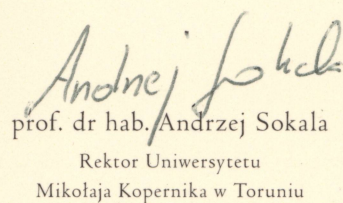 Andrzej Sokala
prof. dr hab. Andrzej Sokala
Rektor Uniwersytetu
Mikołaja Kopernika w Toruniu